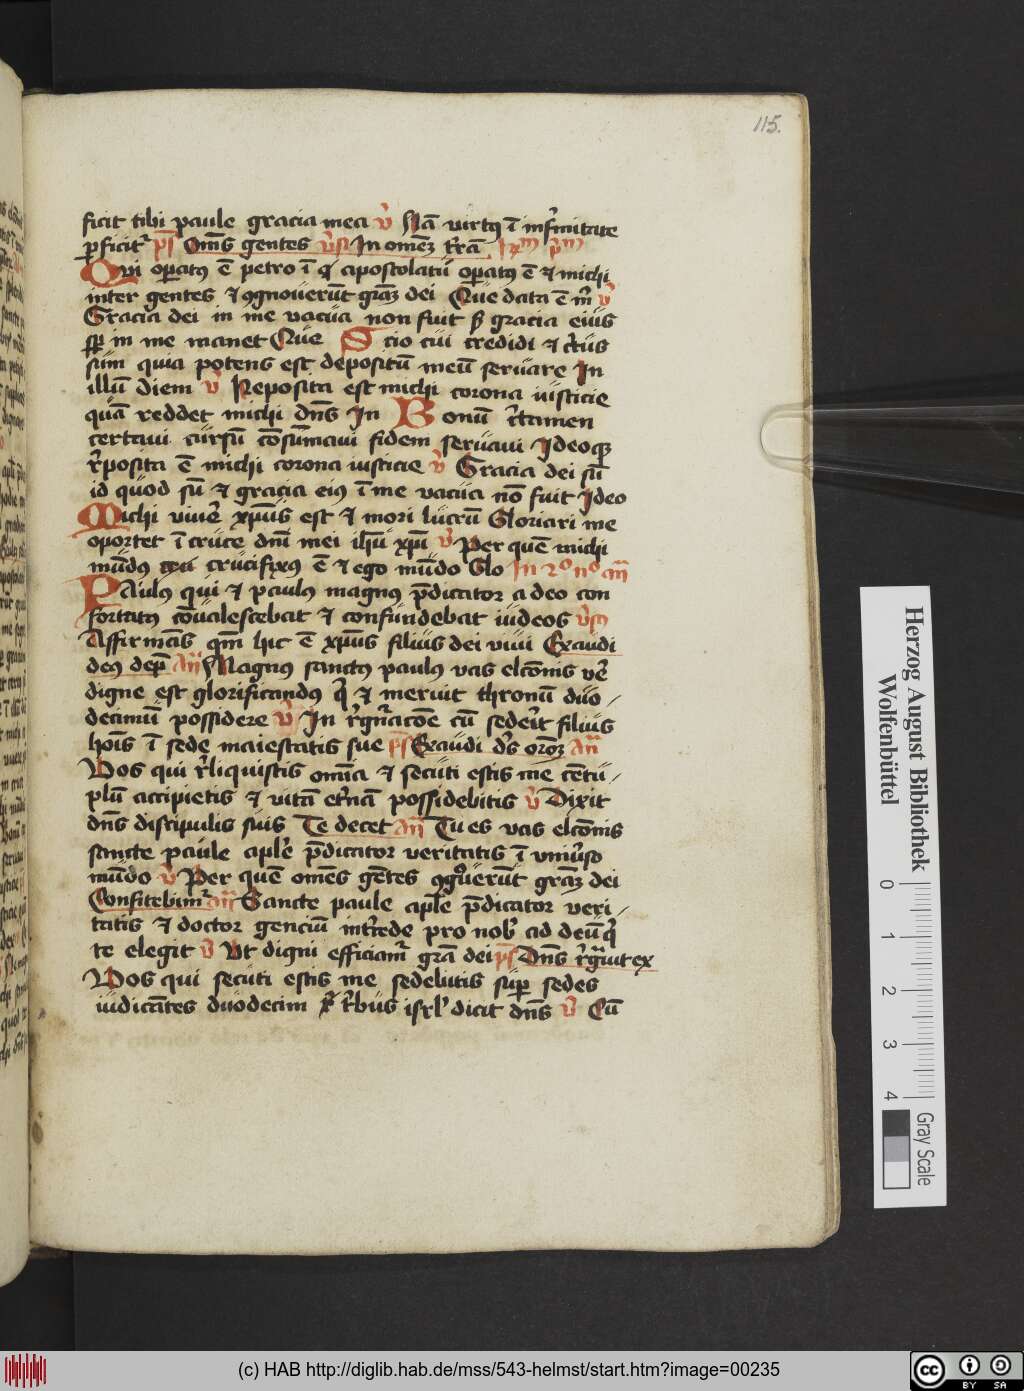 115.
ficit tibi paule gracia mea v̄ Nā virtꝯ ī infirmitate
ꝑficitr̄ pꝭ Om̄s gentes v̄s In omeꝫ t̄rā
Qui oꝑatꝯ ē petro ī apostolatū oꝑatꝯ ē ⁊ michi
inter gentes ⁊ ꝯgnouerūt grāꝫ dei Que data ē m̄ v̄
Gracia dei in me vacua non fuit ꝫ gracia eius
sꝑ in me manet Que Scio cui credidi ⁊ c̄tus
sum quia potens est depositū meū seruare In
illū diem v̄ Reposita est michi corona iusticie
quā reddet michi dn̄s In Bonū c̄tamen
certaui cursū cōsūmaui fidem seruaui Ideoqꝫ
r̄posita ē michi corona iusticie v̄ Gracia dei sū
id quod sū ⁊ gracia eiꝯ ī me vacua nō fuit Ideo
Michi viuē xp̄us est ⁊ mori lucrū Gloriari me
oportet ī cruce dn̄i mei ih̄u xp̄i v̄ Per quē michi
mūdꝯ crucifixus ē ⁊ ego mūdo Glo In 2º nº an̄
Paulus qui ⁊ paulꝯ magnꝯ p̄dicator a deo con
fortatꝯ cōualescebat ⁊ confundebat iudeos v̄s
Affirmās qm̄ hic ē xp̄us filius dei viui Exaudi
deꝯ dep̄ an̄ Magnꝯ sanctꝯ paulꝯ vas elcōnis vē
digne est glorificandꝯ q̄ ⁊ meruit thronū duo
decimū possidere v̄ In r̄gn̄acōe cū sed̄it filius
hoīs ī sede maiestatis sue pꝭ Exaudi ds̄ or̄oꝫ an̄
Vos qui r̄liquistis omīa ⁊ secuti estis me cētu
plū accipietis ⁊ vitā et̄nā possidebitis v̄ Dixit
dn̄s discipulis suis Te decet an̄ Tu es vas elcōnis
sancte paule aplē p̄dicator veritatis ī vniu̇so
mūdo v̄ Per quē omēs gētes ꝯgouerūt grāꝫ dei
Confitebimr̄ an̄ Sancte paule aplē p̄dicator veri
tatis ⁊ doctor genciū int̄cede pro nob̄ ad deū q̄
te elegit v̄ Vt digni efficiamr̄ grā dei pꝭ Dn̄s r̄gnuit ex
Vos qui secuti estis me sedebitis suꝑ sedes
iudicātes duodecim t̄bus isrl̄ dicit dn̄s v̄ Cū
Herzog August Bibliothek
Wolfenbüttel
0 1 2 3 4
Gray Scale
(c) HAB http://diglib.hab.de/mss/543-helmst/start.htm?image=00235
cc BY SA